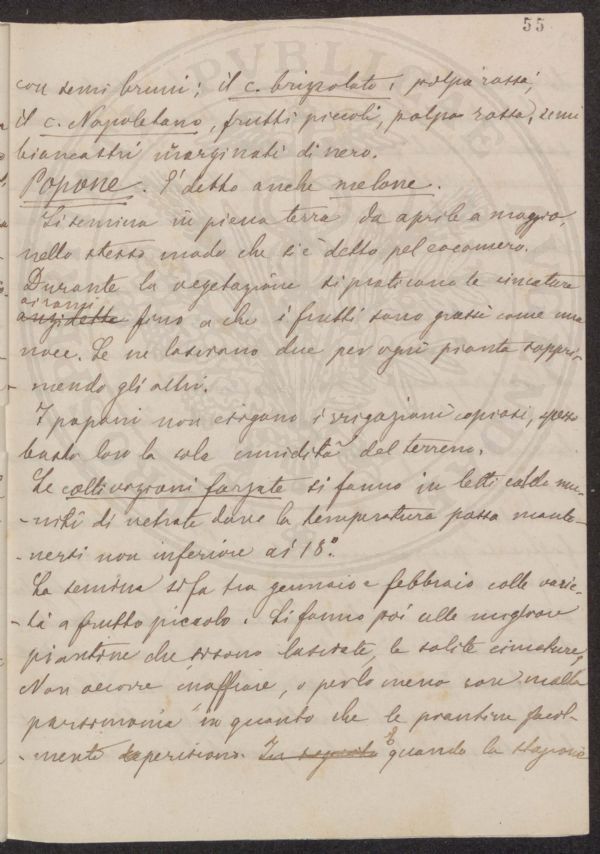 55
con semi bruni; il c. brizzolato, polpa rossa;
il c. Napoletano, frutti piccoli, polpa rossa, semi
biancastri marginati di nero.
Popone. E' detto anche melone.
Si semina in piena terra da aprile a maggio,
nello stesso modo che si è detto pel cocomero.
Durante la vegetazione si praticano le cimature
ai rami
anzidette fino a che i frutti sono grossi come una
noce. Se ne lasciano due per ogni pianta soppri-
mendo gli altri.
I poponi non esigono irrigazioni copiose, spesso
basta loro la sola umidità del terreno.
Le coltivazioni forzate si fanno in letti caldi mu-
-niti di vetrate dove la temperatura possa mante-
-nersi non inferiore ai 18°.
La semina si fa tra gennaio e febbraio colle varie-
-tà a frutto piccolo. Si fanno poi alle migliori
piantine che si sono lasciate, le solite cimature,
Non occorre inaffiare, o per lo meno con molta
parsimonia in quanto che le piantine facil-
-mente deperiscono. In seguito E quando la stagione
PVBLICAE